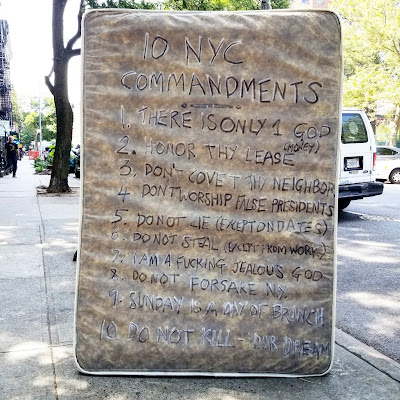 10 NYC
COMMANDMENTS
1. THERE IS ONLY 1 GOD
(MONEY)
2. HONOR THY LEASE
3. DON'T COVET THY NEIGHBOR
4 DONT WORSHIP FALSE PRESIDENTS
5. DO NOT LIE (EXCEPT ON DATES)
6. DO NOT STEAL (EXCEPT FROM WORK)
7. I AM A FUCKING JEALOUS GOD
8. DO NOT FORSAKE NY.
9. SUNDAY IS A DAY OF BRUNCH
10. DO NOT KILL - OUR DREAM